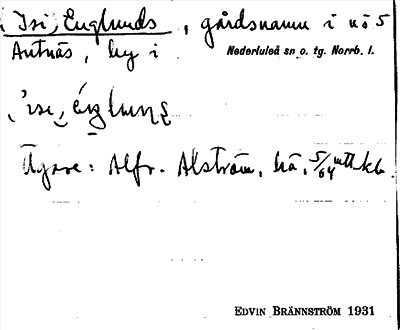 Isi, Englunds, gårdsnamn i nö 5
Antnäs, by i Nederluleå sn o. tg. Norrb. l.
Ägare: Alfr. Alström, hä, 5/64 mtl
EDVIN BRÄNNSTRÖM 1931